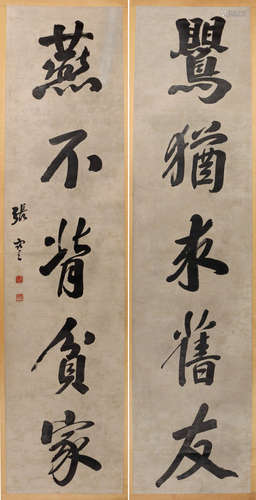 鸎猶求舊友
燕不背貧家
張